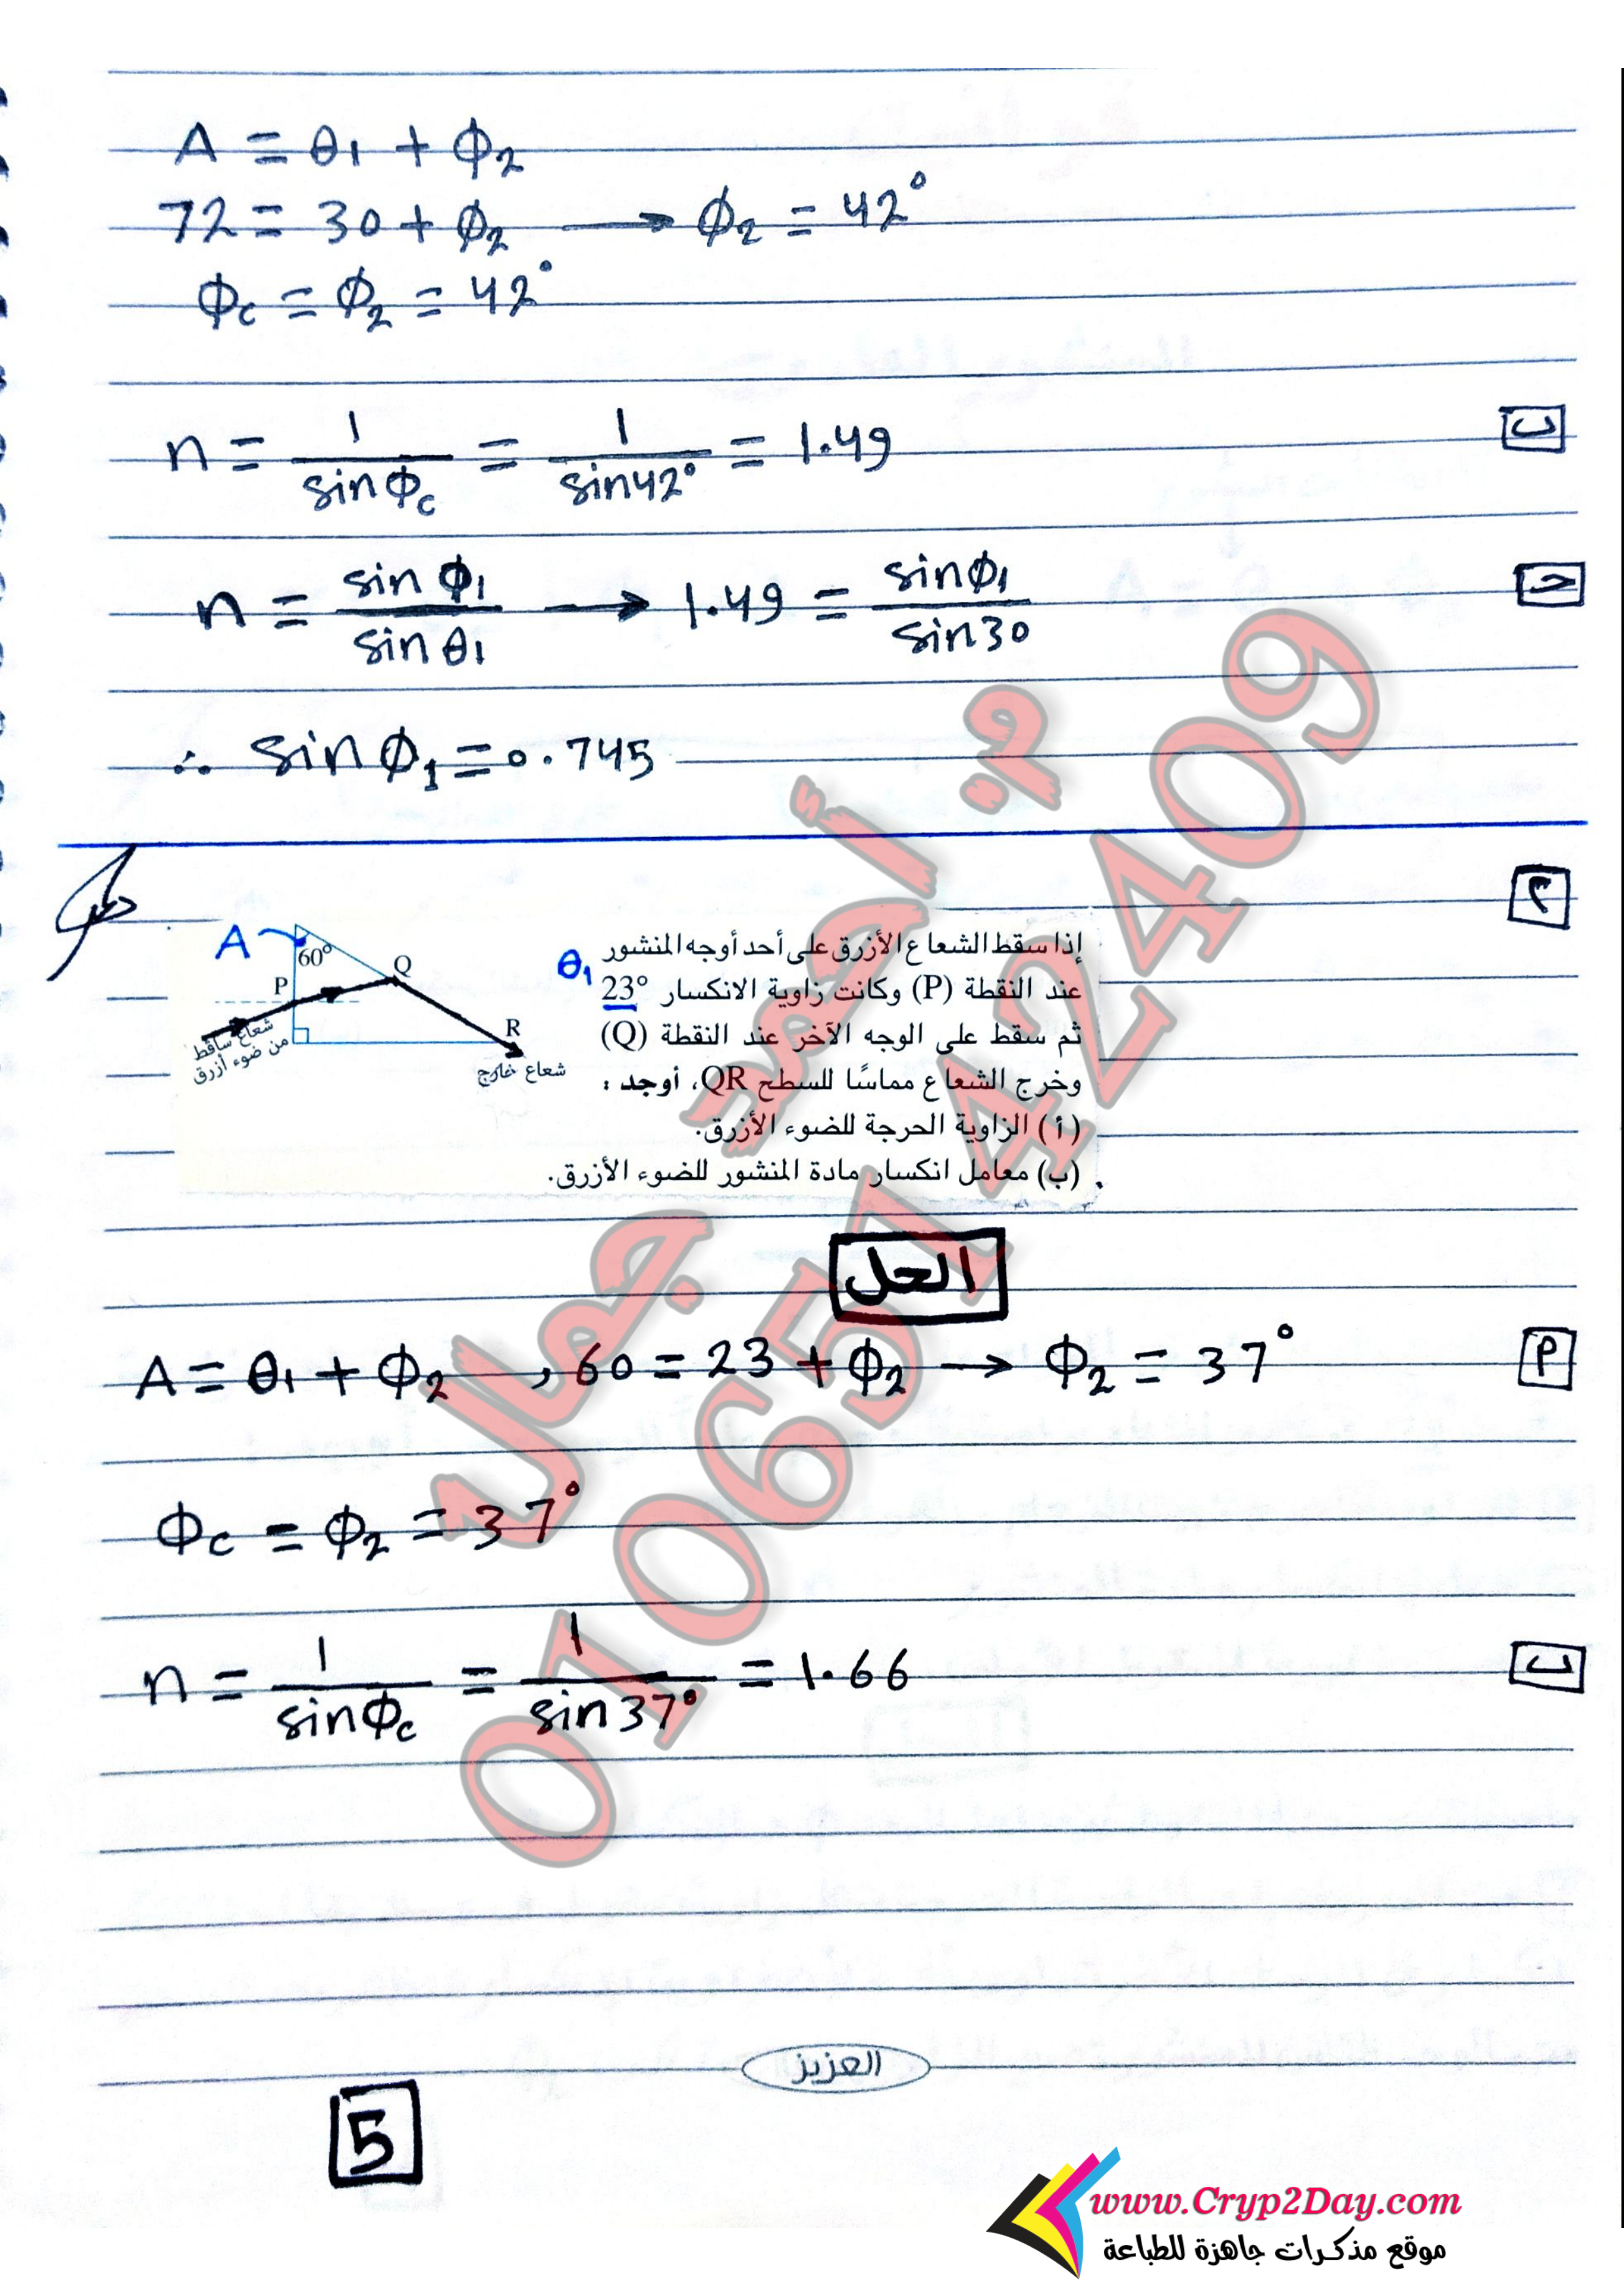 A = θ1 + ϕ2
72 = 30 + ϕ2 → ϕ2 = 42°
ϕc = ϕ2 = 42°
ب
n = 1/sin ϕc = 1/sin 42° = 1.49
ج
n = sin ϕ1/sin θ1 → 1.49 = sin ϕ1/sin 30
∴ sin ϕ1 = 0.745
٢
إذا سقط الشعاع الأزرق على أحد أوجه المنشور
عند النقطة (P) وكانت زاوية الانكسار 23° θ1
ثم سقط على الوجه الآخر عند النقطة (Q)
وخرج الشعاع مماسًا للسطح QR، أوجد :
(أ) الزاوية الحرجة للضوء الأزرق.
(ب) معامل انكسار مادة المنشور للضوء الأزرق.
A
60°
Q
P
R
شعاع ساقط
من ضوء أزرق
شعاع خارج
الحل
P
A = θ1 + ϕ2 , 60 = 23 + ϕ2 → ϕ2 = 37°
ϕc = ϕ2 = 37°
ب
n = 1/sin ϕc = 1/sin 37° = 1.66
م. أحمد جمال
01065142409
العزيز
5
www.Cryp2Day.com
موقع مذكرات جاهزة للطباعة